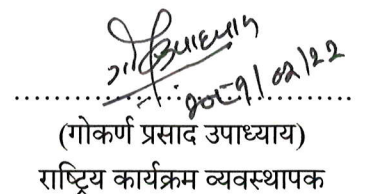 २०८१/०२/२२
(गोकर्ण प्रसाद उपाध्याय)
राष्ट्रिय कार्यक्रम व्यवस्थापक